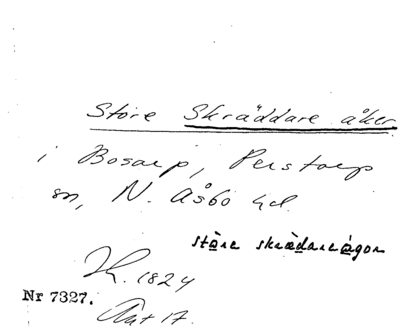 Store Skräddare åker
i Bosarp, Perstorp
sn, N. Åsbo hd.
störe skrædareågor
H. 1824
Nr 7327.
Akt 17.